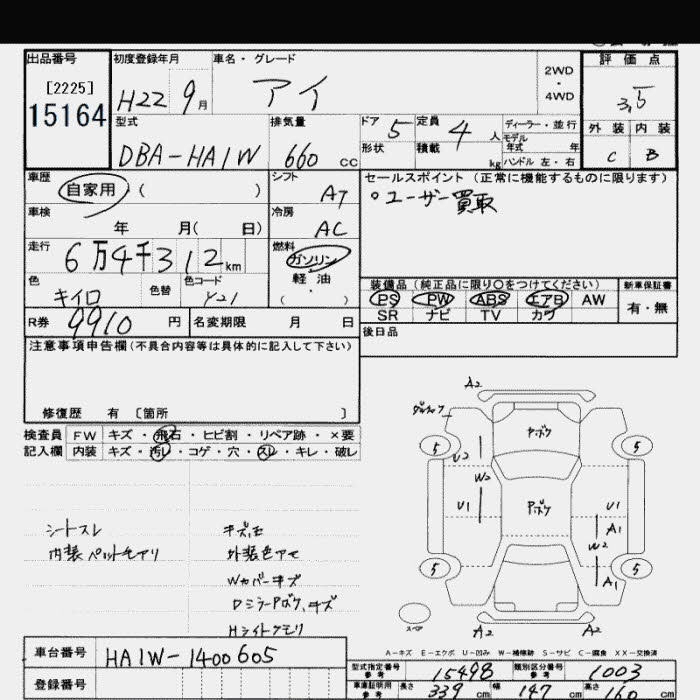 出品番号 初度登録年月 車名・グレード 評価点
[2225]
15164
H22 9月 アイ 2WD・4WD 3,5
外装 内装
C B
型式 排気量 ドア 5 定員 4人 ディーラー・並行
DBA-HA1W 660cc 形状 積載 kg モデル年式 年
ハンドル 左・右
車歴 シフト セールスポイント (正常に機能するものに限ります)
自家用 ( ) AT ○ユーザー買取
車検 冷房
年 月( 日) AC
走行 燃料
6万4千312km ガソリン
軽油
( ・ )
色 色替 色コード
キイロ Y21
装備品 (純正品に限り○をつけてください) 新車保証書
PS PW ABS エアB AW 有・無
SR ナビ TV カワ
R券 9910円 名変期限 月 日
後日品
注意事項申告欄(不具合内容等は具体的に記入して下さい)
修復歴 有 〔箇所 〕
検査員 FW キズ・飛石・ヒビ割・リペア跡・×要
記入欄 内装 キズ・汚レ・コゲ・穴・スレ・キレ・破レ
シートスレ
内装ペットモアリ
外装色アセ
Wカバーキズ
DミラーPボケ、キズ
Hライトクモリ
A2
5 Pボケ 5
U2
W2
U1 Pボケ U1
A1
W2
5 A1 5
スペア
A2 A2
A-キズ E-エクボ U-凹み W-補修跡 S-サビ C-腐食 XX-交換済
車台番号 HA1W-1400605
登録番号
型式指定番号 参考 15498 類別区分番号 参考 1003
車庫証明用 参考 長さ 339cm 幅 147cm 高さ 160cm